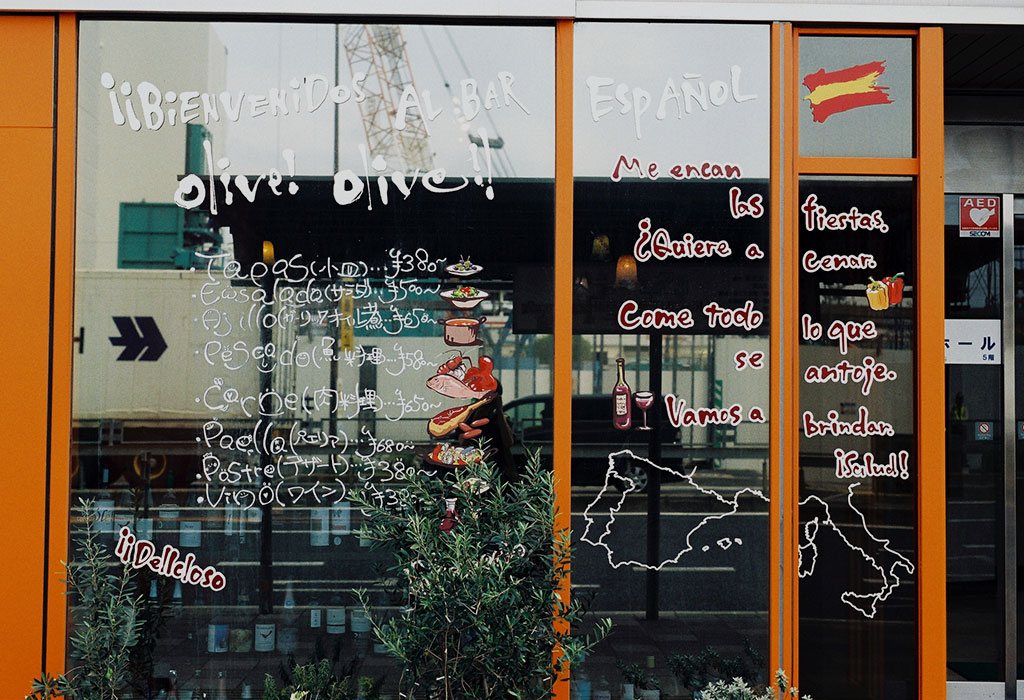 ¡¡BiENVENiDOS AL BAR ESPAÑOL
olive! olive!!
・Tapas(小皿)…¥380~
・Ensalada(サラダ)…¥500~
・Ajillo(ガーリックオイル煮)…¥650~
・Pescado(魚料理)…¥580~
・Carne(肉料理)…¥650~
・Paella(パエリア)…¥680~
・Postre(デザート)…¥380~
・Vino(ワイン)…¥380
¡¡Delicioso
Me encan
las fiestas.
¿Quiere a cenar.
Come todo lo que
se antoje.
Vamos a brindar.
¡Salud!
AED
SECOM
ホール
5階